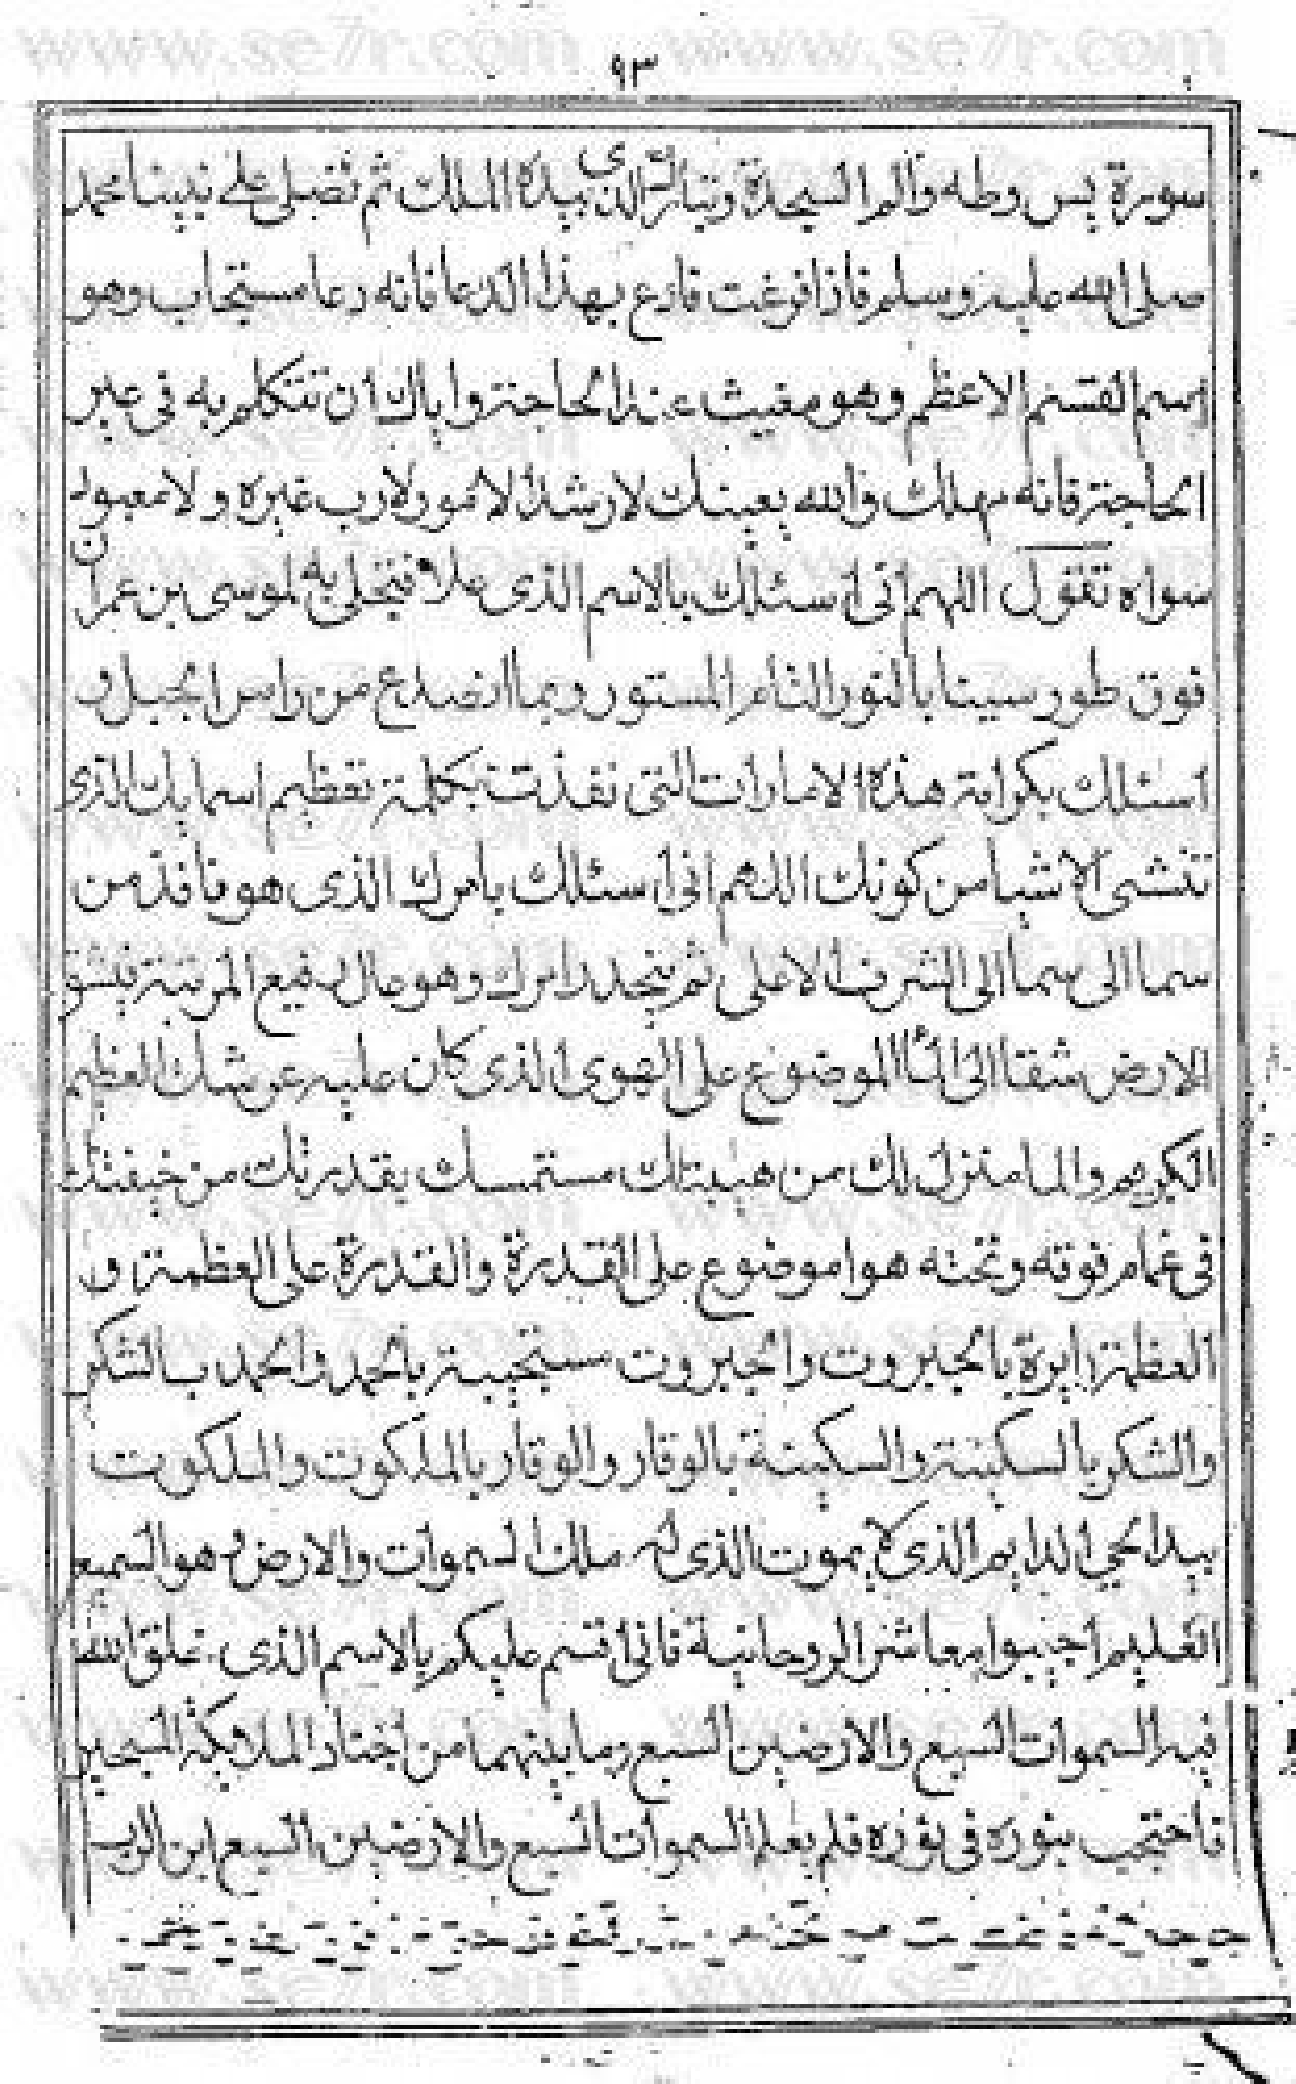 www.se7r.com www.se7r.com
٩٣
سورة يس وطه والم السجدة وتبارك الذى بيده الملك ثم تصلى على نبينا محمد
صلى الله عليه وسلم فاذا فرغت فادع بهذا الدعا فانه دعا مستجاب وهو
اسم القسم الاعظم وهو مغيث عند الحاجة واياك ان تتكلم به فى غير
الحاجة فانه يهلك والله يعينك لارشد الامور لا رب غيره ولا معبود
سواه تقول اللهم انى اسئلك بالاسم الذى علا فتجلى به لموسى بن عمران
فوق طور سينا بالنور التام المستور وبما انصدع من راس الجبل و
اسئلك بكرامة هذه الامارات التى نفذت بكلمة تعظيم اسمايك الذى
تنشى الاشيا من كونك اللهم انى اسئلك بامرك الذى هو نافذ من
سما الى سما الى الشرف الاعلى ثم يتجدد امرك وهو عال رفيع المرتبة يشق
الارض شقا الى الما الموضوع على الهوى الذى كان عليه عرشك العظيم
الكريم والما منزل لك من هيبتك مستمسك بقدرتك من خيفتك
فى غمام فوقه وتحته هوا موضوع على القدرة والقدرة على العظمة و
العظمة بالجبروت والجبروت مستجيبة بالحمد والحمد بالشكر
والشكر بالسكينة والسكينة بالوقار والوقار بالملكوت والملكوت
بيد الحى الدايم الذى لا يموت الذى له ملك السموات والارض وهو السميع
العليم اجيبوا معاشر الروحانية فانى اقسم عليكم بالاسم الذى خلق الله
فيه السموات السبع والارضين السبع وما بينهما من اختار الملايكة المسبحين
فاحتجب بنوره فى نوره فلم يعلم السموات السبع والارضين السبع اين الرب